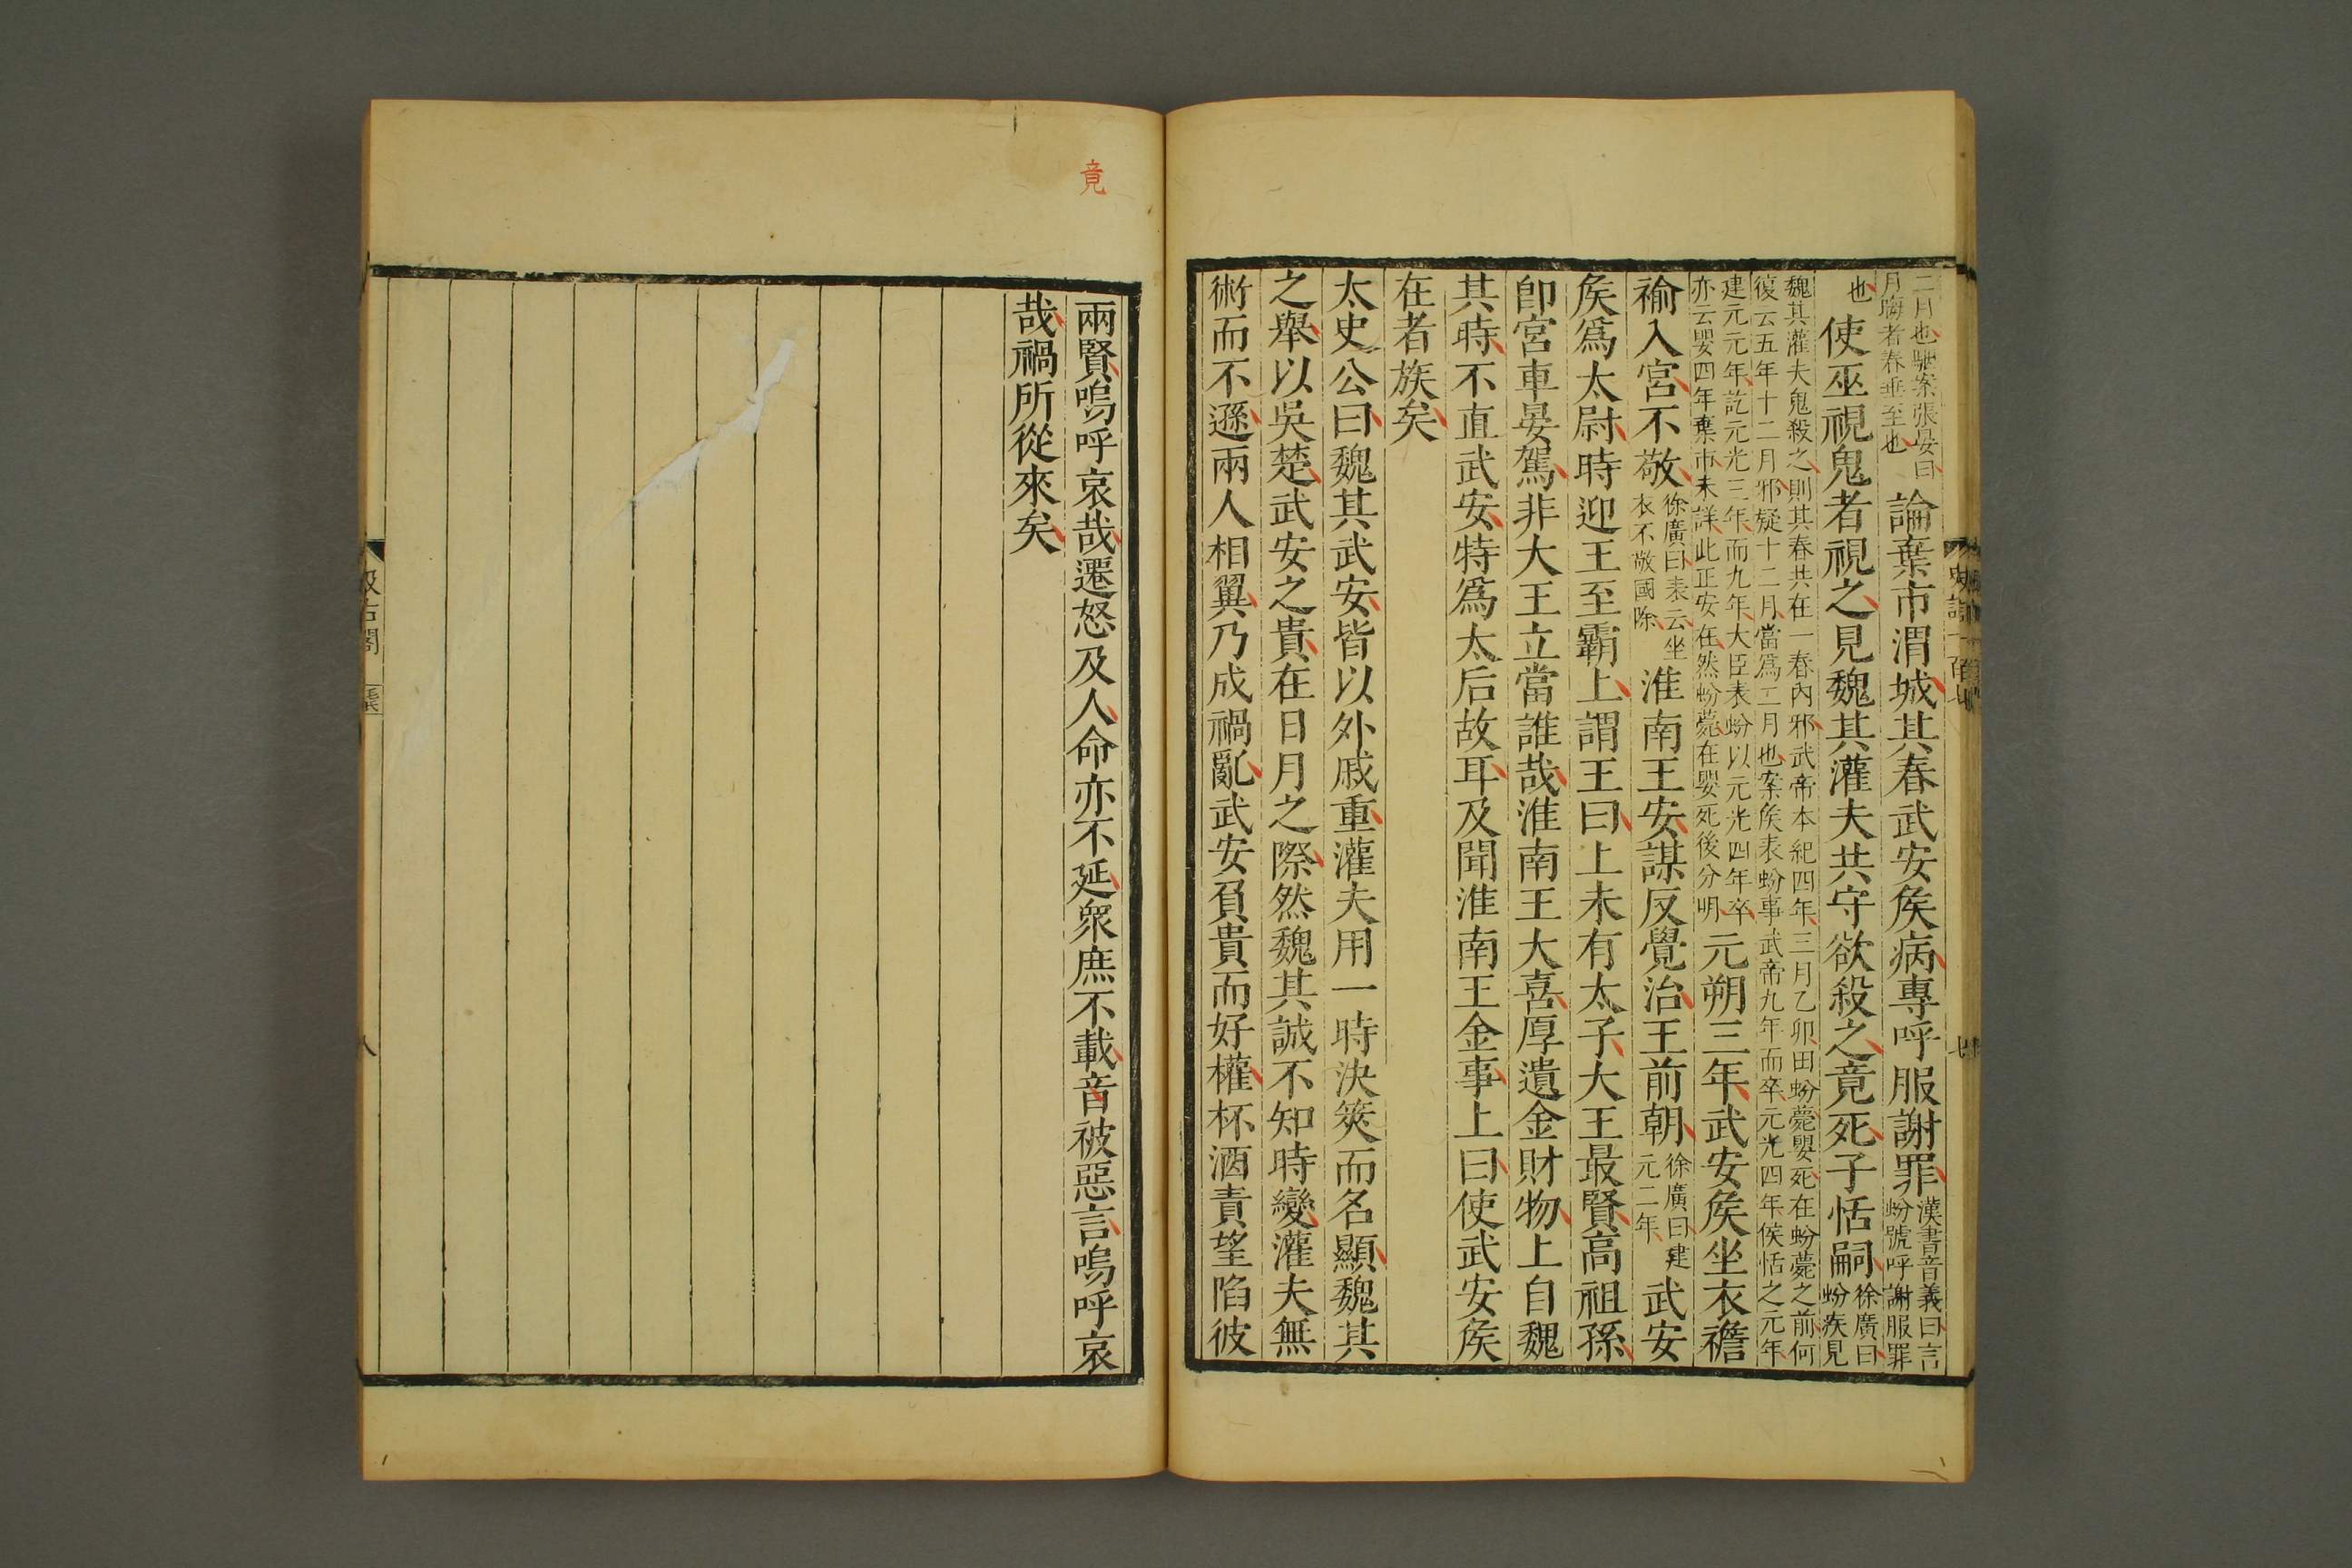 二月也駰案張晏曰
月晦者春垂至也
論棄市渭城其春武安矦病專呼服謝罪
漢書音義曰言
蚡號呼謝服罪
也
使巫視鬼者視之見魏其灌夫共守欲殺之竟死子恬嗣
徐廣曰
蚡疾見
魏其灌夫鬼殺之則其春共在一春內邪武帝本紀四年三月乙卯田蚡薨嬰死在蚡薨之前何
復云五年十二月邪疑十二月當爲二月也案矦表蚡事武帝九年而卒元光四年侯恬之元年
建元元年訖元光三年而九年大臣表蚡以元光四年卒
亦云嬰四年棄市未詳此正安在然蚡薨在嬰死後分明
元朔三年武安矦坐衣襜
褕入宮不敬
徐廣曰表云坐
衣不敬國除
淮南王安謀反覺治王前朝
徐廣曰建
元二年
武安
矦爲太尉時迎王至霸上謂王曰上未有太子大王最賢高祖孫
卽宮車晏駕非大王立當誰哉淮南王大喜厚遺金財物上自魏
其時不直武安特爲太后故耳及聞淮南王金事上曰使武安矦
在者族矣
太史公曰魏其武安皆以外戚重灌夫用一時決筴而名顯魏其
之舉以吳楚武安之貴在日月之際然魏其誠不知時變灌夫無
術而不遜兩人相翼乃成禍亂武安負貴而好權杯酒責望陷彼
史記一百七
七
竟
兩賢嗚呼哀哉遷怒及人命亦不延衆庶不載音被惡言嗚呼哀
哉禍所從來矣
汲古閣
毛氏
八